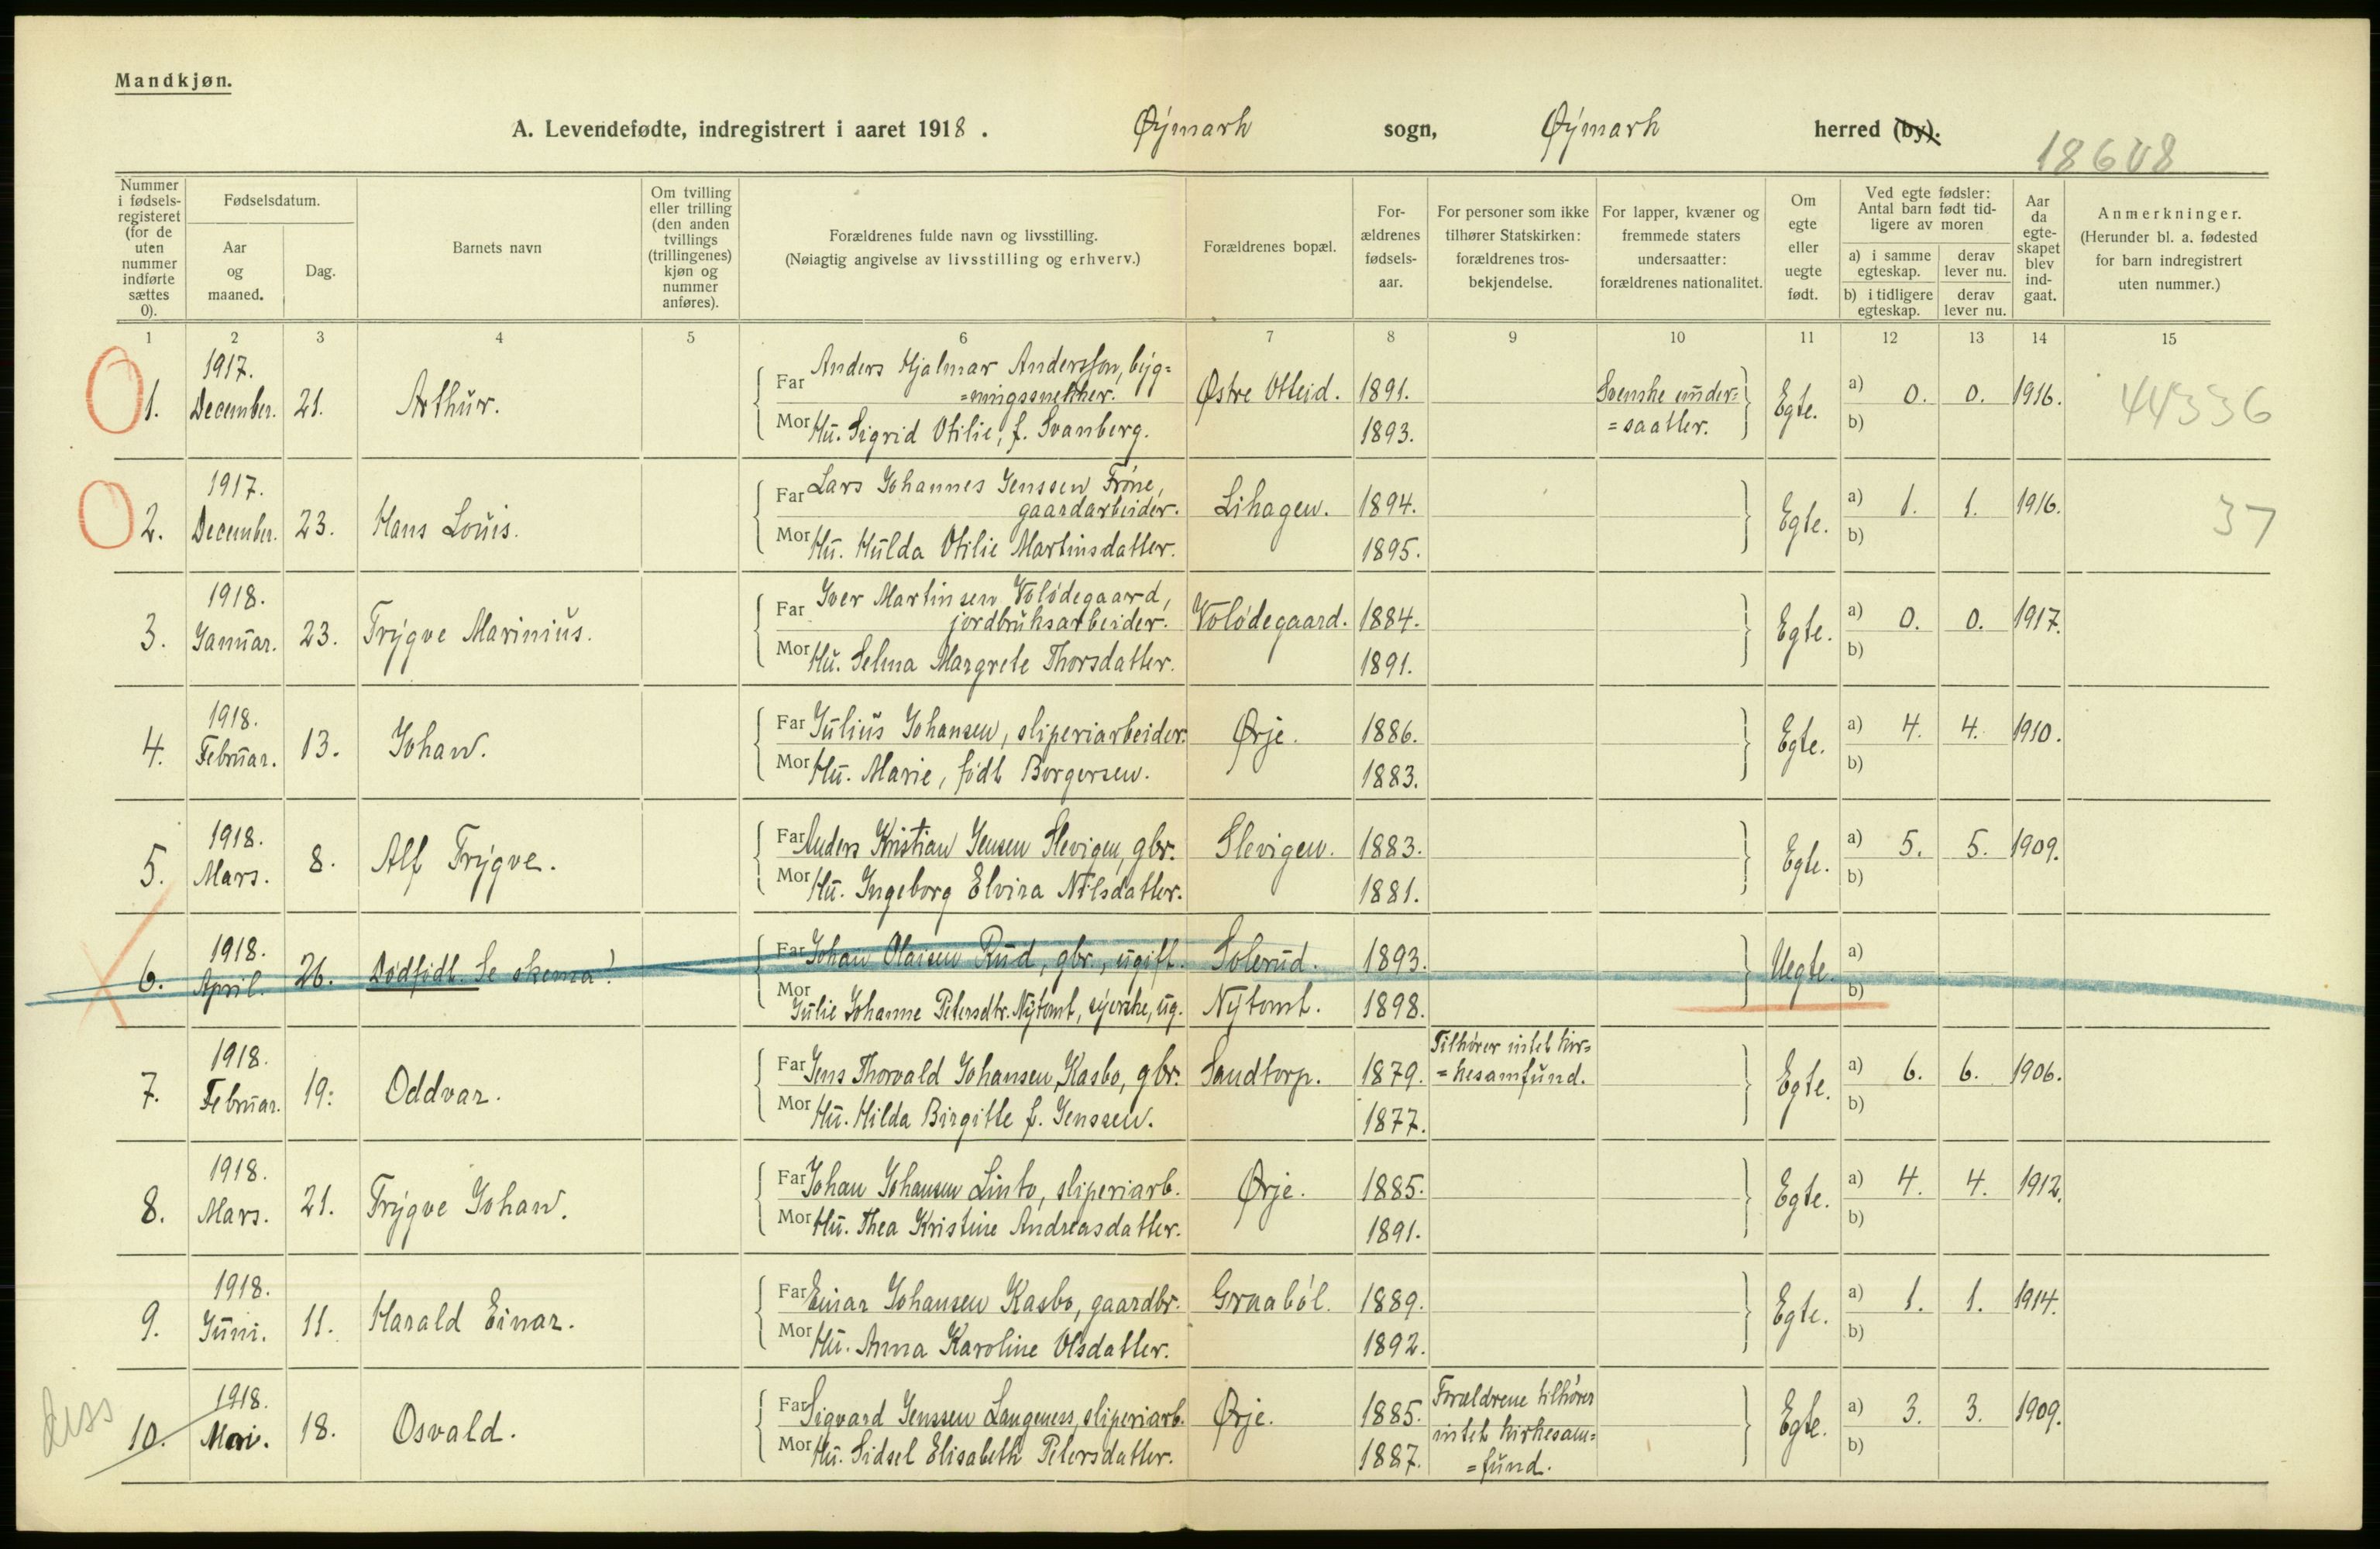 Mandkjøn.
A. Levendefødte, indregistrert i aaret 1918. Øymark sogn, Øymark herred (by).
18608
Nummer i fødselsregisteret (for de uten nummer indførte sættes 0).
Fødselsdatum.
Aar og maaned.
Dag.
Barnets navn
Om tvilling eller trilling (den anden tvillings (trillingenes) kjøn og nummer anføres).
Forældrenes fulde navn og livsstilling.
(Nøiagtig angivelse av livsstilling og erhverv.)
Forældrenes bopæl.
Forældrenes fødselsaar.
For personer som ikke tilhører Statskirken: forældrenes trosbekjendelse.
For lapper, kvæner og fremmede staters undersaatter: forældrenes nationalitet.
Om egte eller uegte født.
Ved egte fødsler: Antal barn født tidligere av moren
a) i samme egteskap. derav lever nu.
b) i tidligere egteskap. derav lever nu.
Aar da egteskapet blev indgaat.
Anmerkninger.
(Herunder bl. a. fødested for barn indregistrert uten nummer.)
1 2 3 4 5 6 7 8 9 10 11 12 13 14 15
1. 1917. December. 21. Arthur. Far Anders Hjalmar Andersson, byg=
=ningssnekker. Østre Otteid. 1891. Svenske under=
=saatter. Egte. a) 0. 0. 1916. 44336
Mor Hu. Sigrid Otilie, f. Svanberg. 1893. b)
2. 1917. December. 23. Hans Louis. Far Lars Johannes Jenssen Trøne,
gaardarbeider. Lihagen. 1894. Egte. a) 1. 1. 1916. 37
Mor Hu. Hulda Otilie Martinsdatter. 1895. b)
3. 1918. Januar. 23. Trygve Marinius. Far Iver Martinsen Volødegaard,
jordbruksarbeider. Volødegaard. 1884. Egte. a) 0. 0. 1917.
Mor Hu. Selma Margrete Thorsdatter. 1891. b)
4. 1918. Februar. 13. Johan. Far Julius Johansen, sliperiarbeider. Ørje. 1886. Egte. a) 4. 4. 1910.
Mor Hu. Marie, født Borgersen. 1883. b)
5. 1918. Mars. 8. Alf Trygve. Far Anders Kristian Jensen Slevigen, gbr. Slevigen. 1883. Egte. a) 5. 5. 1909.
Mor Hu. Ingeborg Elvira Nilsdatter. 1881. b)
6. 1918. April. 26. Dødfødt. Se skema! Far Johan Olaisen Rud, gbr., ugift. Solerud. 1893. Uegte. a)
Mor Julie Johanne Petersdtr. Nytomt, syerske, ug. Nytomt. 1898. b)
7. 1918. Februar. 19. Oddvar. Far Jens Thorvald Johansen Kasbo, gbr. Sandtorp. 1879. Tilhører intet kir=
=kesamfund. Egte. a) 6. 6. 1906.
Mor Hu. Hilda Birgitte f. Jenssen. 1877. b)
8. 1918. Mars. 21. Trygve Johan. Far Johan Johansen Linto, sliperiarb. Ørje. 1885. Egte. a) 4. 4. 1912.
Mor Hu. Thea Kristine Andreasdatter. 1891. b)
9. 1918. Juni. 11. Harald Einar. Far Einar Johansen Kasbo, gaardbr. Graabøl. 1889. Egte. a) 1. 1. 1914.
Mor Hu. Anna Karoline Olsdatter. 1892. b)
10. 1918. Mai. 18. Osvald. Far Sigvard Jenssen Langeness, sliperiarb. Ørje. 1885. Forældrene tilhører
intet kirkesam=
=fund. Egte. a) 3. 3. 1909.
Mor Hu. Sidsel Elisabeth Petersdatter. 1887. b)
diss